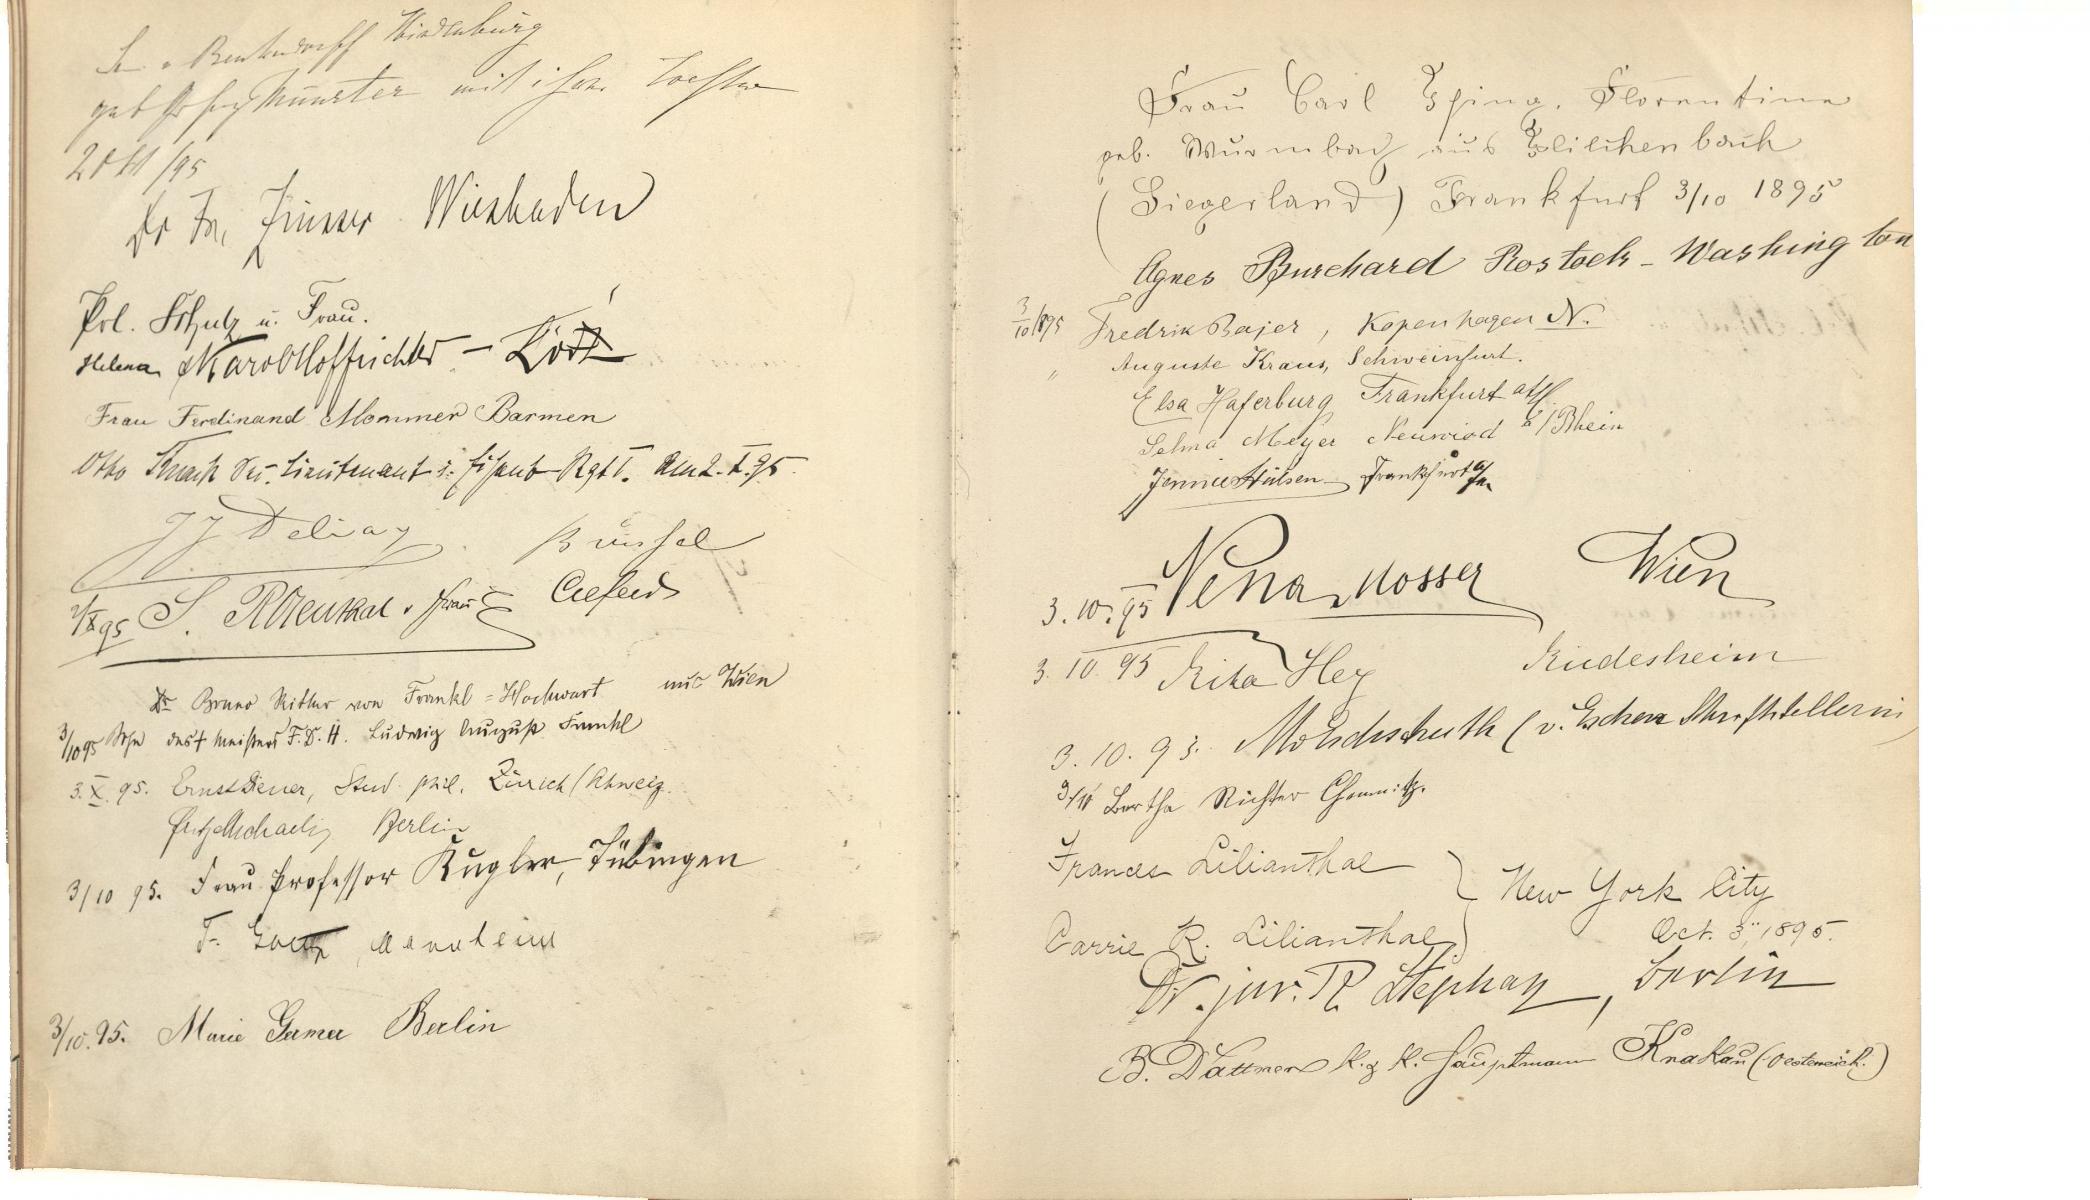 v. Benkendorff Hindenburg
geb. Münster mit ihrer Tochter
2 Okt /95
Dr Fr. Wiesbaden
Pol. Schulz u. Frau.
Helena Karol Hoffrichter –
Frau Ferdinand Mommer Barmen
Otto Knack Sec. Lieutenant i. Eisenb. Rgt I. den 2. X. 95.
JJ Brüssel
2/X 95 S. Rosenthal u. Frau Crefeld
Dr Bruno Ritter von Frankl=Hochwart aus Wien
3/10 95 Sohn des † Meisters F.D.H. Ludwig August Frankl
3. X. 95. Ernst Diener, Stud. phil. Zürich/Schweiz.
Berlin
3/10 95. Frau Professor Kugler, Tübingen
F. Goetz Mannheim
3/10. 95. Marie Germer Berlin
Frau Carl Florentine
geb. Wurmbach aus
(Siegerland) Frankfurt 3/10 1895
Agnes Burchard Rostock – Washington
3/10/895 Fredrik Bajer, Kopenhagen N.
" Auguste Kraus, Schweinfurt.
Elsa Haferburg Frankfurt a/M.
Selma Meyer Neuwied a/Rhein
Jennie Hülsen Frankfurt a/M
3. 10. 95 Nena Mosser Wien
3. 10. 95 Rita Hey Rüdesheim
3. 10. 95. (v. Eschen Schriftstellerin)
3/10 Bertha Richter Chemnitz.
Frances Lilianthal
New York City
Carrie R. Lilianthal
Oct. 3", 1895.
Dr. jur. R Stephan, Berlin
B. Dattner K. & K. Hauptmann Krakau (Oesterreich.)